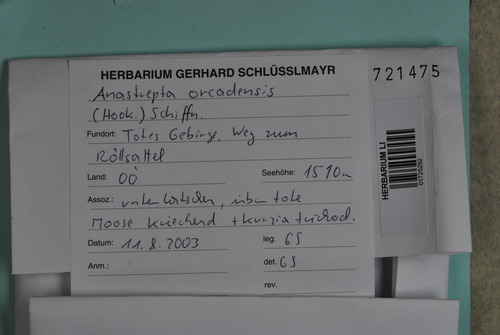 HERBARIUM GERHARD SCHLÜSSLMAYR
721475
Anastrepta orcadensis
(Hook.) Schiffn.
Fundort: Totes Gebirge, Weg zum
Land: OÖ Seehöhe: 1510m
Assoz.: unter Latschen, über tote
Moose kriechend + Kurzia trichocl.
Datum: 11.8.2003 leg. GS
Anm.: det. GS
rev.
HERBARIUM LI